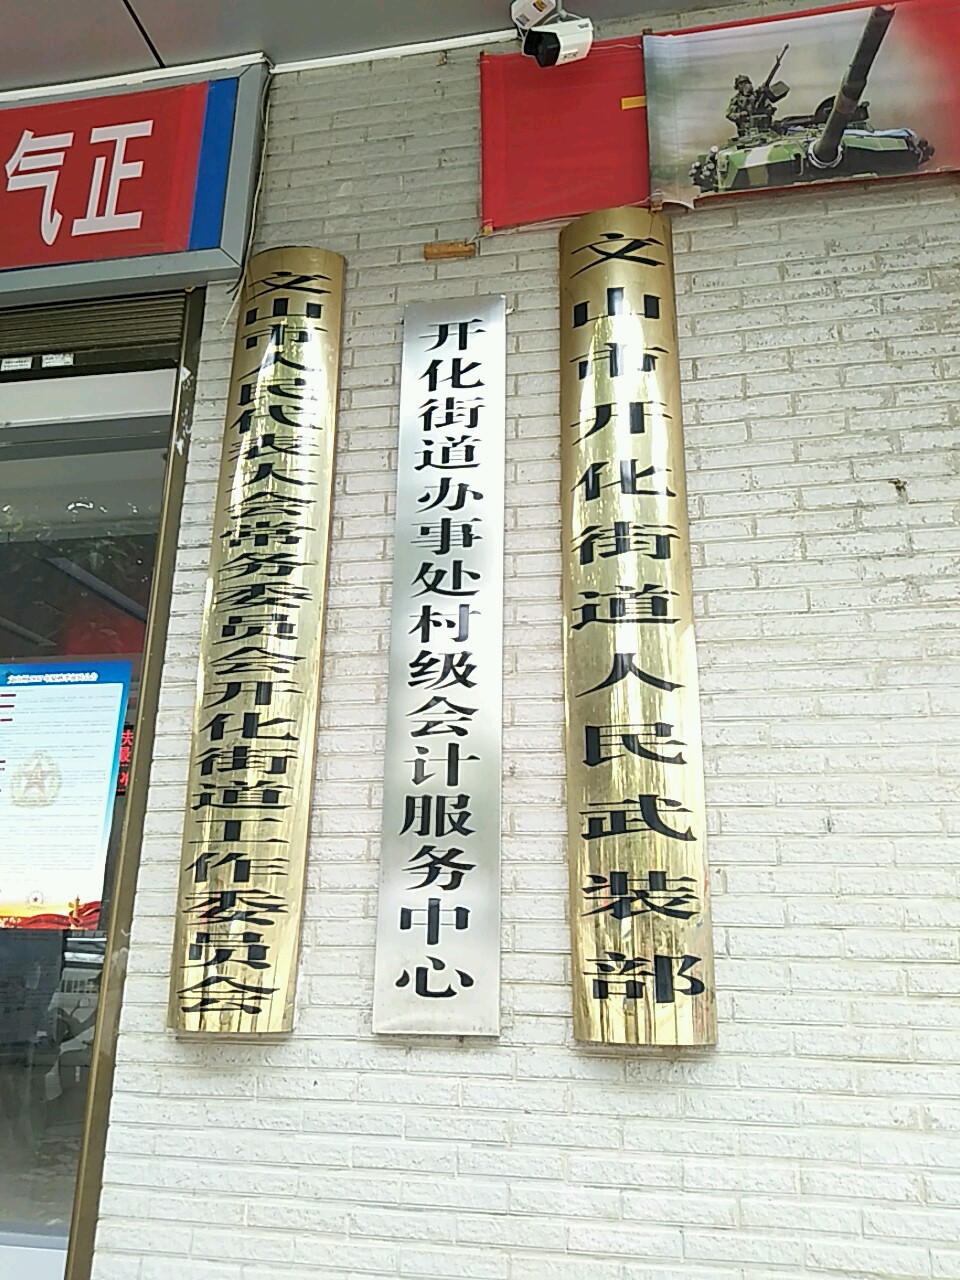 气正
文山市人民代表大会常务委员会开化街道工作委员会
开化街道办事处村级会计服务中心
文山市开化街道人民武装部